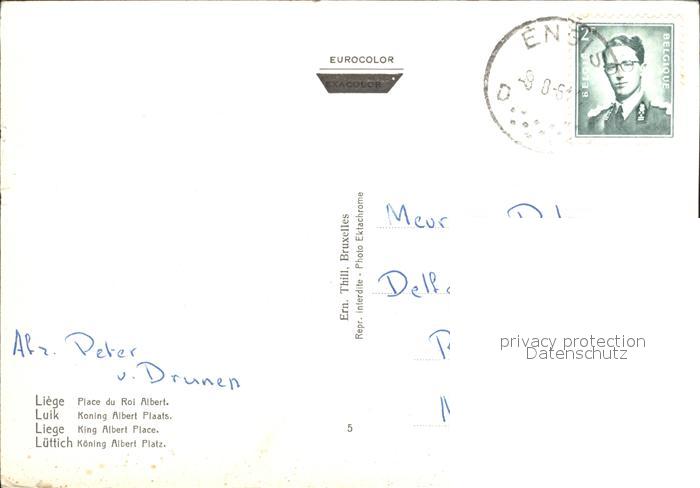 EUROCOLOR
EXACOLOR
ENGIS
2F
BELGIE
BELGIQUE
Ern. Thill, Bruxelles
Repr. interdite - Photo Ektachrome
Meur
Delf
privacy protection
Datenschutz
Afz. Peter
v. Drunen
Liège Place du Roi Albert.
Luik Koning Albert Plaats.
Liege King Albert Place.
Lüttich Köning Albert Platz.
5